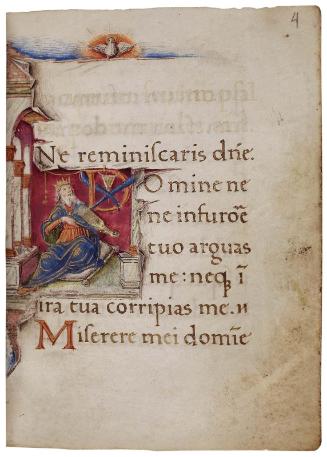 4
Ne reminiscaris dn̄e:
Domine ne
ne infurōe
tuo arguas
me: neqꝫ ī
ira tua corripias me. ıı
Miserere mei domīe